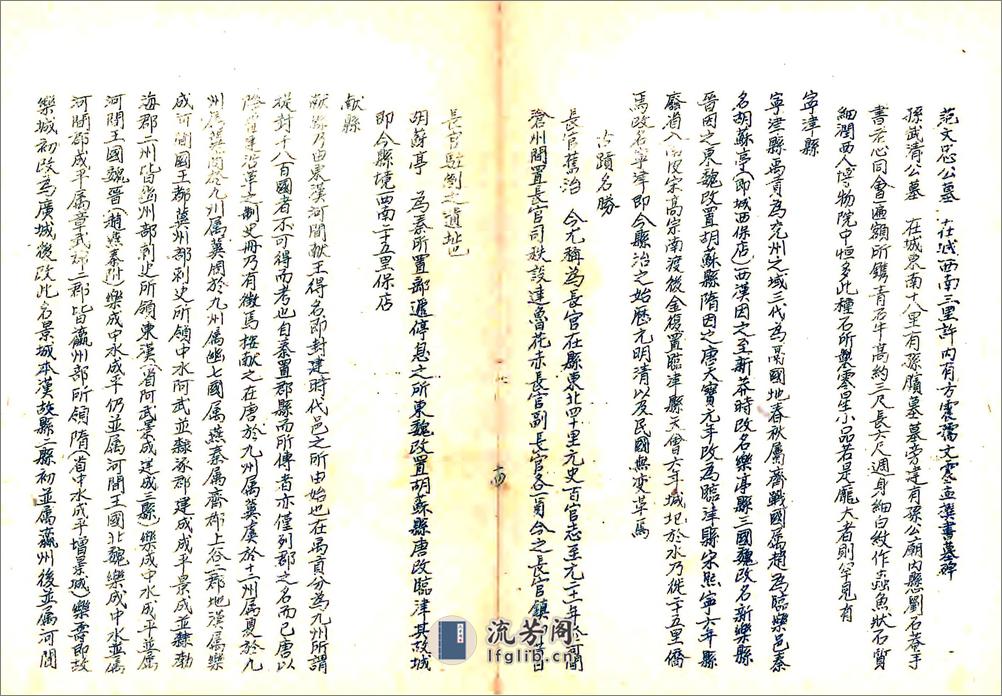 范文忠公墓　在城西南三里許內有方震孺文震孟撰書墓碑
孫武清公墓　在城東南十八里有孫臏墓墓旁建有孫公廟內懸劉石菴手
書若心同會匾額所鐫青石牛高約三尺長六尺週身細白紋作蟲魚狀石質
細潤西人博物院中恒多此種石所製零星小品若是龐大者則罕見有
寧津縣
寧津縣禹貢為兖州之域三代為鬲國地春秋屬齊戰國屬趙為臨樂邑秦
名胡蘇亭即城西保店西漢因之至新莽時改名樂亭縣三國魏改名新樂縣
晉因之東魏改置胡蘇縣隋因之唐天寶元年改為臨津縣宋熙寧六年縣
廢省入南皮宋高宗南渡後金復置臨津縣天會六年城圮於水乃徙二十五里僑
馬政名寧津即今縣治之始歷元明清以及民國無變革焉
古蹟名勝
長官舊治　今尤稱為長官在縣東北四十里元史百官志至元二十一年於河間
滄州間置長官司秩設達魯花赤長官副長官各一員今之長官鎮為昔日
長官駐劄之遺址也
胡蘇亭　為秦所置鄙遞停息之所東魏改置胡蘇縣唐改臨津其故城
即今縣境西南二十五里保店
獻縣
獻縣乃由東漢河間獻王得名即封建時代邑之所由始也在禹貢分為九州所謂
從封十八百國者不可得而考也自秦置郡縣而所傳者亦僅列郡之名而已唐以
降建沿革之制史冊乃有徵焉按獻之在唐於九州屬冀虞於十二州屬夏於九
州屬冀商於九州屬冀周於九州屬幽七國屬燕秦屬齊郡上谷二郡地漢屬樂
成河間國王都冀州部刺史所領中水阿武並隸涿郡建成成平景成並隸勃
海郡二州皆幽州部刺史所領東漢省阿武景成建成三縣樂成中水成平並屬
河間王國魏晉趙燕秦附樂成中水成平仍並屬河間王國北魏樂成中水並屬
河間郡成平屬章武郡二郡皆瀛州部所領隋省中水成平增景城樂壽即故
樂城初改為廣城後改此名景城本漢故縣二縣初並屬瀛州後並屬河間
十四
流芳阁
lfglib.cn